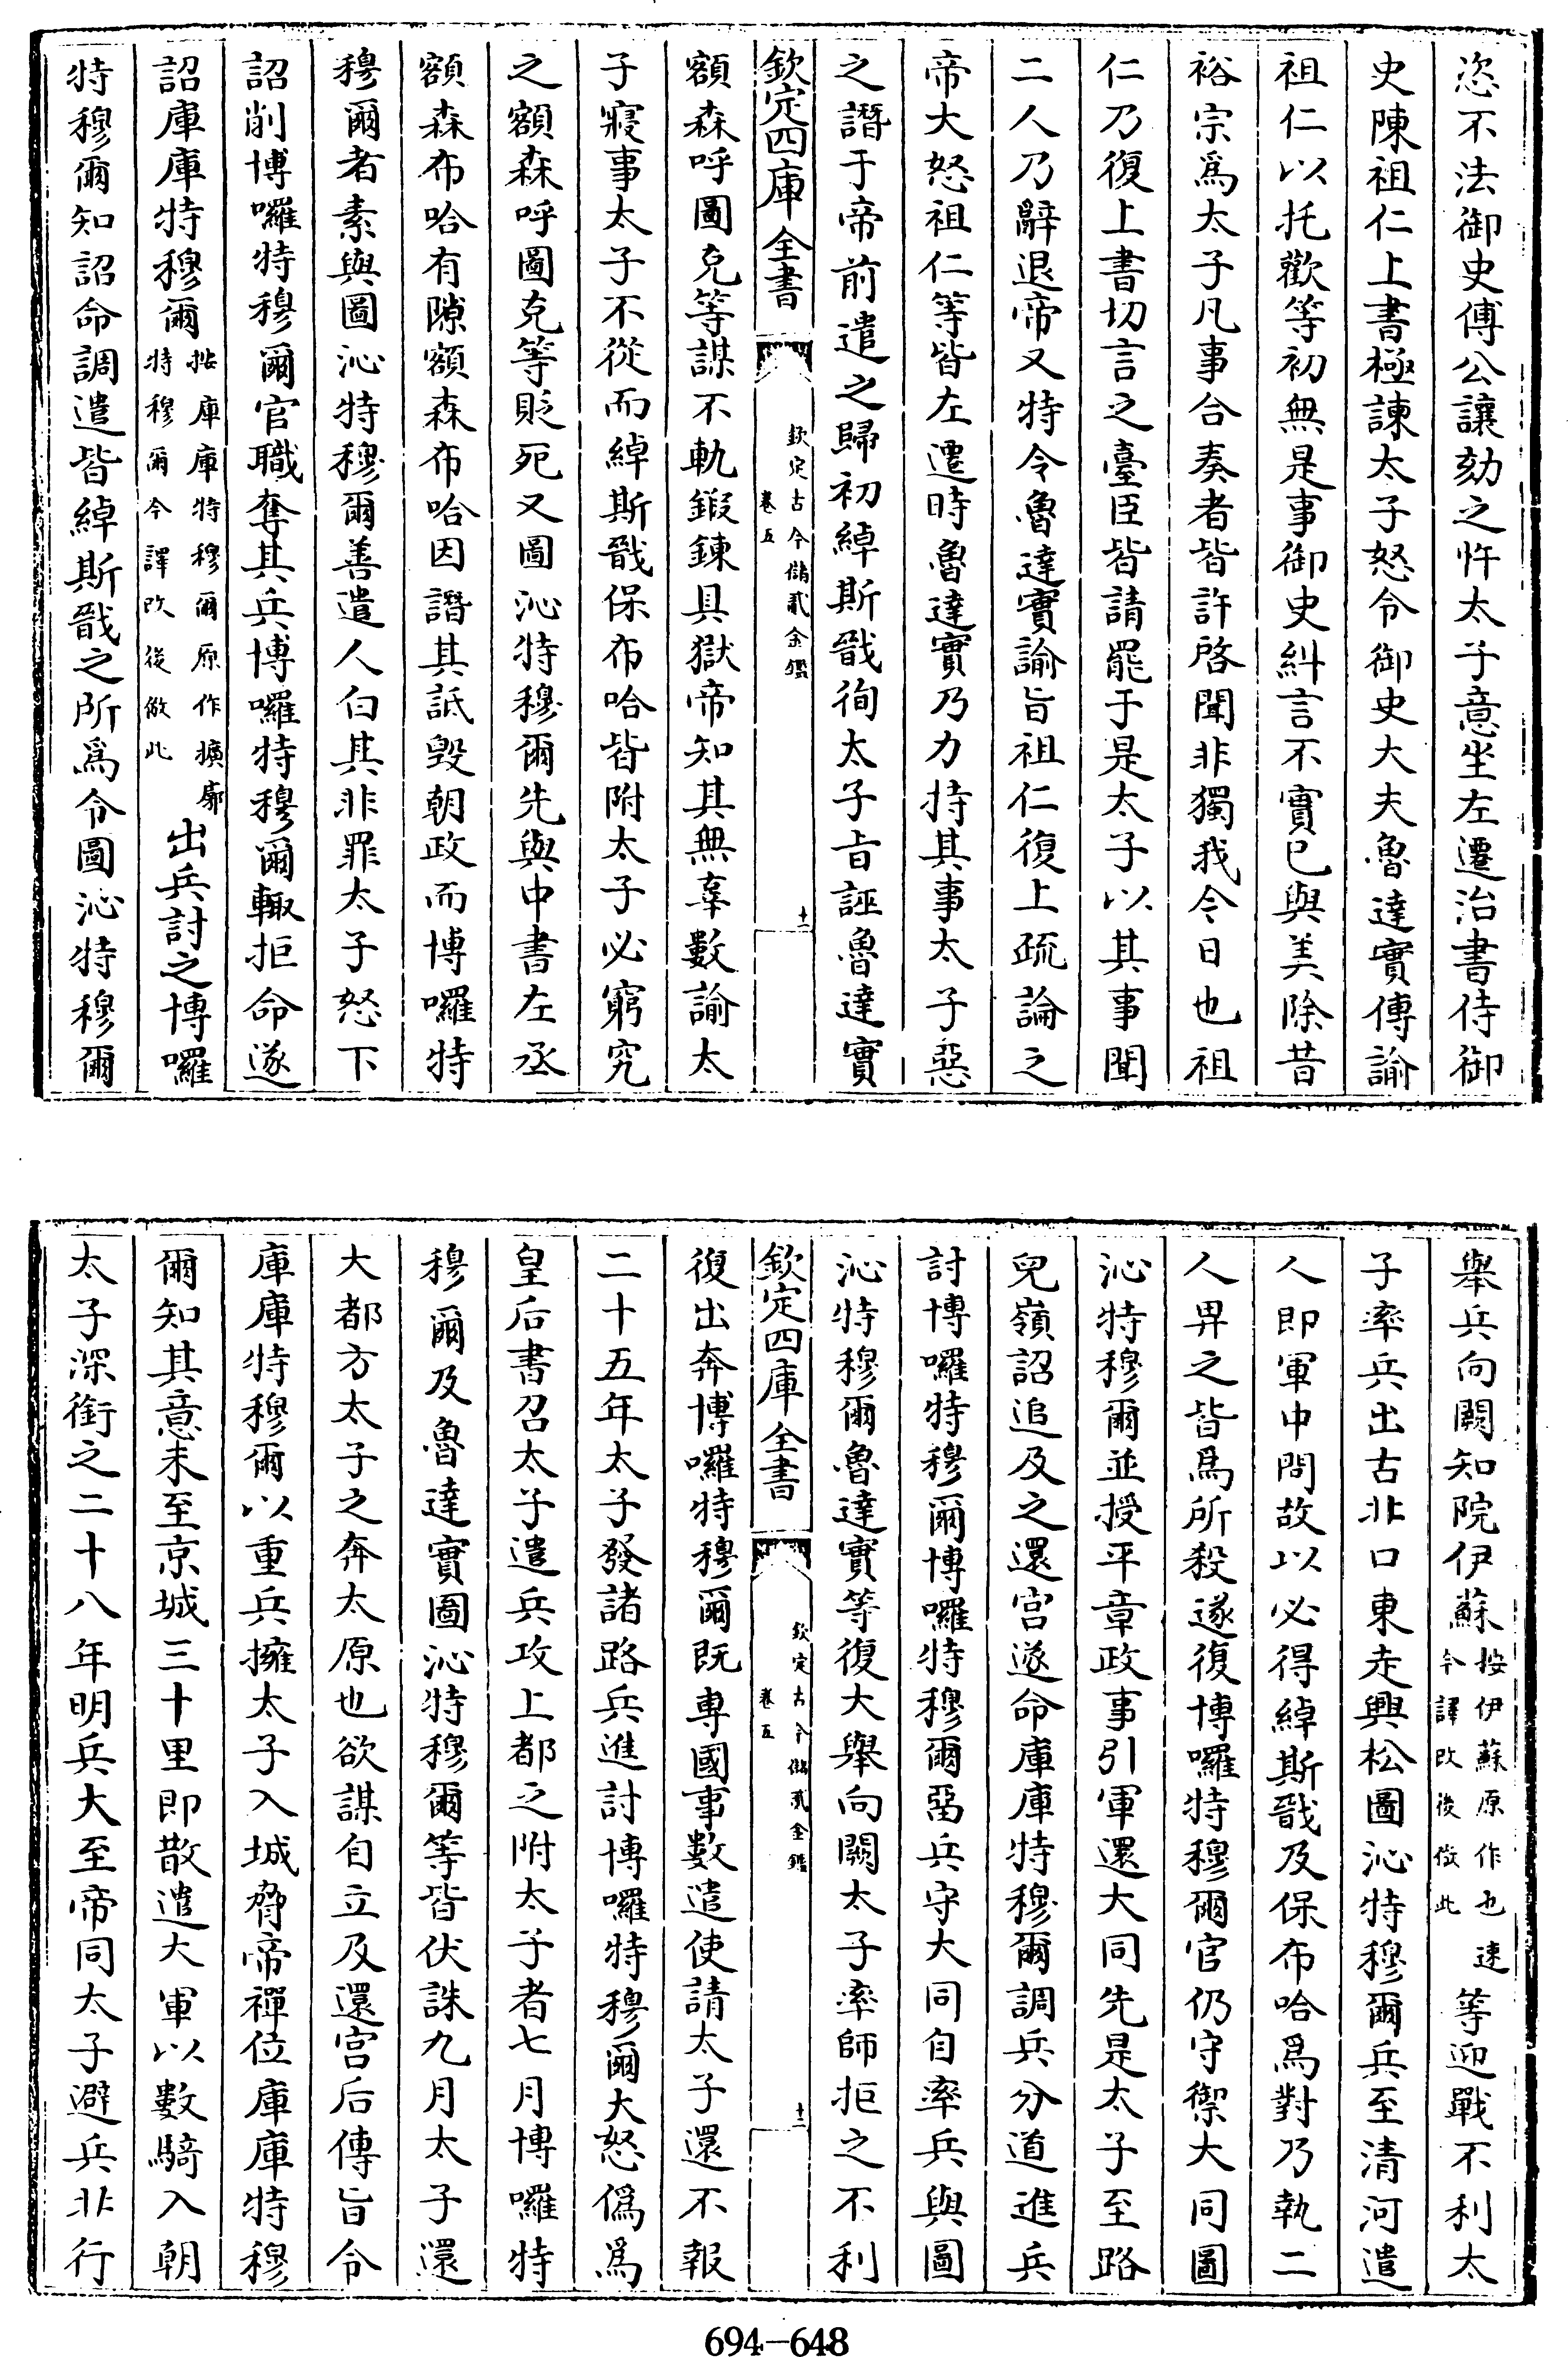 恣不法御史傅公讓劾之忤太子意坐左遷治書侍御
史陳祖仁上書極諫太子怒令御史大夫魯達實傳諭
祖仁以托歡等初無是事御史糾言不實已與美除昔
裕宗爲太子凡事合奏者皆許啓聞非獨我今日也祖
仁乃復上書切言之臺臣皆請罷于是太子以其事聞
二人乃辭退帝又特令魯達實諭旨祖仁復上疏論之
帝大怒祖仁等皆左遷時魯達實乃力持其事太子惡
之譖于帝前遣之歸初綽斯戩徇太子旨誣魯達實
欽定四庫全書
欽定古今儲貳金鑑
卷五
十一
額森呼圖克等謀不軌鍛鍊具獄帝知其無辜數諭太
子寢事太子不從而綽斯戩保布哈皆附太子必窮究
之額森呼圖克等貶死又圖沁特穆爾先與中書左丞
額森布哈有隙額森布哈因譖其詆毀朝政而博囉特
穆爾者素與圖沁特穆爾善遣人白其非罪太子怒下
詔削博囉特穆爾官職奪其兵博囉特穆爾輙拒命遂
詔庫庫特穆爾按庫庫特穆爾原作擴廓特穆爾今譯改後倣此出兵討之博囉
特穆爾知詔命調遣皆綽斯戩之所爲令圖沁特穆爾
舉兵向闕知院伊蘇按伊蘇原作也速今譯改後倣此等迎戰不利太
子率兵出古北口東走興松圖沁特穆爾兵至清河遣
人即軍中問故以必得綽斯戩及保布哈爲對乃執二
人畀之皆爲所殺遂復博囉特穆爾官仍守禦大同圖
沁特穆爾並授平章政事引軍還大同先是太子至路
兒嶺詔追及之還宮遂命庫庫特穆爾調兵分道進兵
討博囉特穆爾博囉特穆爾畱兵守大同自率兵與圖
沁特穆爾魯達實等復大舉向闕太子率師拒之不利
欽定四庫全書
欽定古今儲貳金鑑
卷五
十二
復出奔博囉特穆爾既專國事數遣使請太子還不報
二十五年太子發諸路兵進討博囉特穆爾大怒僞爲
皇后書召太子遣兵攻上都之附太子者七月博囉特
穆爾及魯達實圖沁特穆爾等皆伏誅九月太子還
大都方太子之奔太原也欲謀自立及還宮后傳旨令
庫庫特穆爾以重兵擁太子入城脅帝禪位庫庫特穆
爾知其意未至京城三十里即散遣大軍以數騎入朝
太子深銜之二十八年明兵大至帝同太子避兵北行
694-648